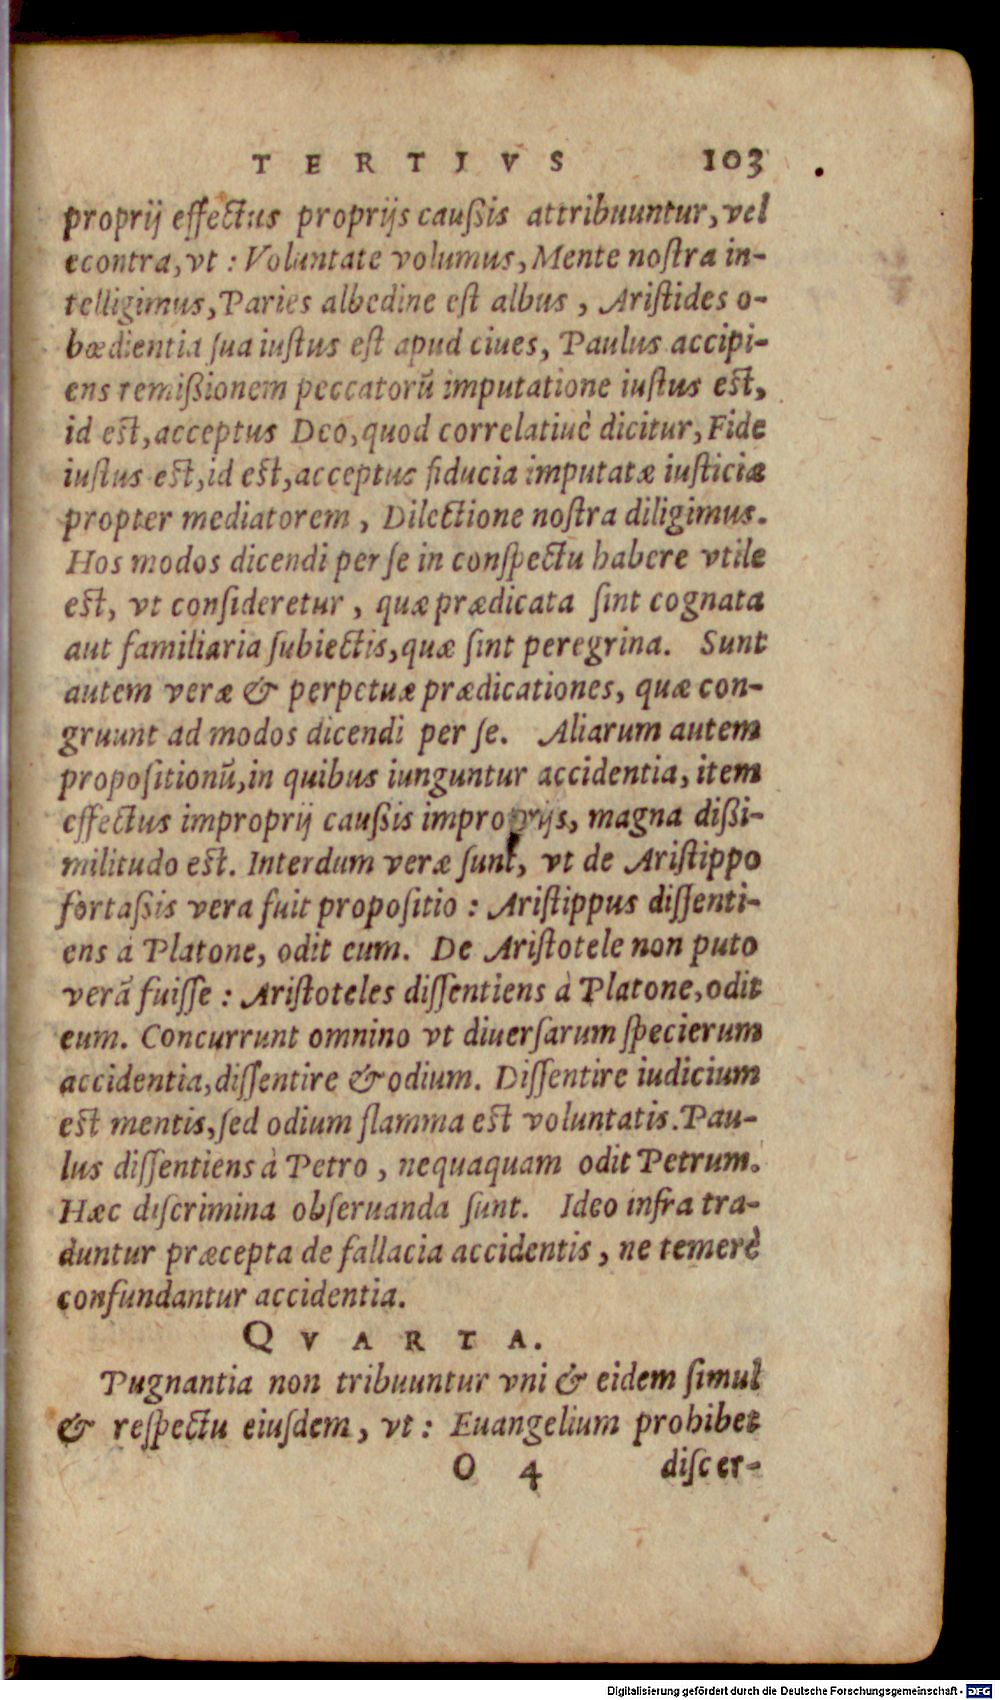 TERTIVS 103
proprij effectus proprijs caußis attribuuntur, vel
econtra, vt : Voluntate volumus, Mente noſtra in-
telligimus, Paries albedine eſt albus , Ariſtides o-
bœdientia ſua iuſtus eſt apud ciues, Paulus accipi-
ens remißionem peccatorũ imputatione iuſtus eſt,
id eſt, acceptus Deo, quod correlatiuè dicitur, Fide
iuſtus eſt, id eſt, acceptus fiducia imputatæ iuſticiæ
propter mediatorem , Dilectione noſtra diligimus.
Hos modos dicendi per ſe in conſpectu habere vtile
eſt, vt conſideretur , quæ prædicata ſint cognata
aut familiaria ſubiectis, quæ ſint peregrina. Sunt
autem veræ & perpetuæ prædicationes, quæ con-
gruunt ad modos dicendi per ſe. Aliarum autem
propoſitionũ, in quibus iunguntur accidentia, item
effectus improprij caußis improprijs, magna dißi-
militudo eſt. Interdum veræ ſunt, vt de Ariſtippo
fortaßis vera fuit propoſitio : Ariſtippus diſſenti-
ens à Platone, odit eum. De Ariſtotele non puto
verã fuiſſe : Ariſtoteles diſſentiens à Platone, odit
eum. Concurrunt omnino vt diuerſarum ſpecierum
accidentia, diſſentire & odium. Diſſentire iudicium
eſt mentis, ſed odium flamma eſt voluntatis. Pau-
lus diſſentiens à Petro , nequaquam odit Petrum.
Hæc diſcrimina obſeruanda ſunt. Ideo infra tra-
duntur præcepta de fallacia accidentis , ne temerè
confundantur accidentia.
QVARTA.
Pugnantia non tribuuntur vni & eidem ſimul
& reſpectu eiuſdem, vt : Euangelium prohibet
O 4 diſcer-
Digitalisierung gefördert durch die Deutsche Forschungsgemeinschaft - DFG